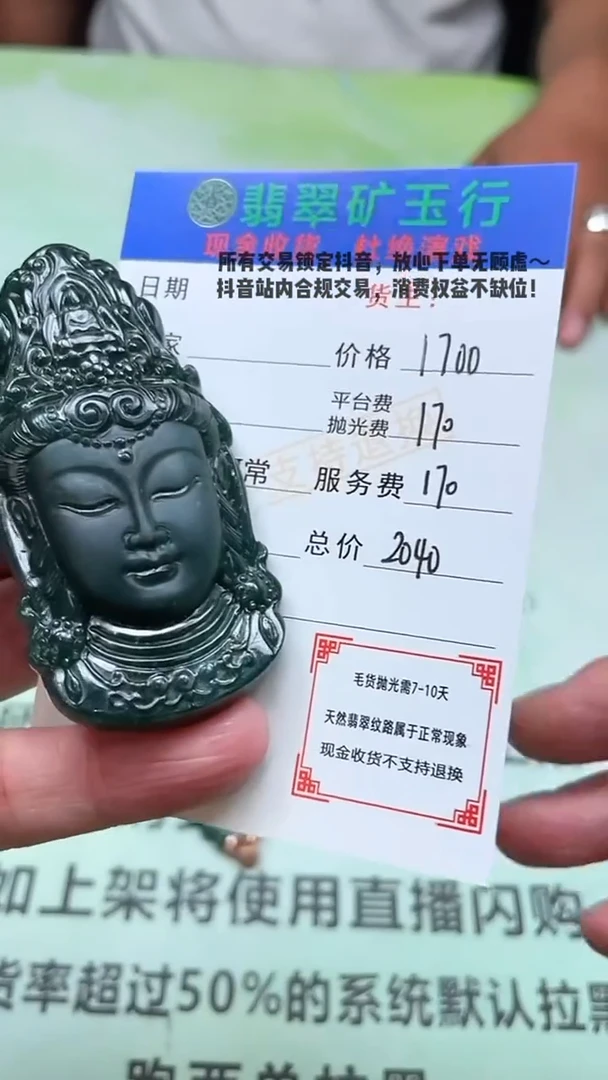 翡翠矿玉行
现金收货 杜绝演戏
所有交易锁定抖音，放心下单无顾虑～
抖音站内合规交易，消费权益不缺位！
日期
货主：
家
价格 1700
平台费
抛光费 170
常
服务费 170
支持退
总价 2040
毛货抛光需7-10天
天然翡翠纹路属于正常现象
现金收货不支持退换
如上架将使用直播闪购
货率超过50%的系统默认拉黑